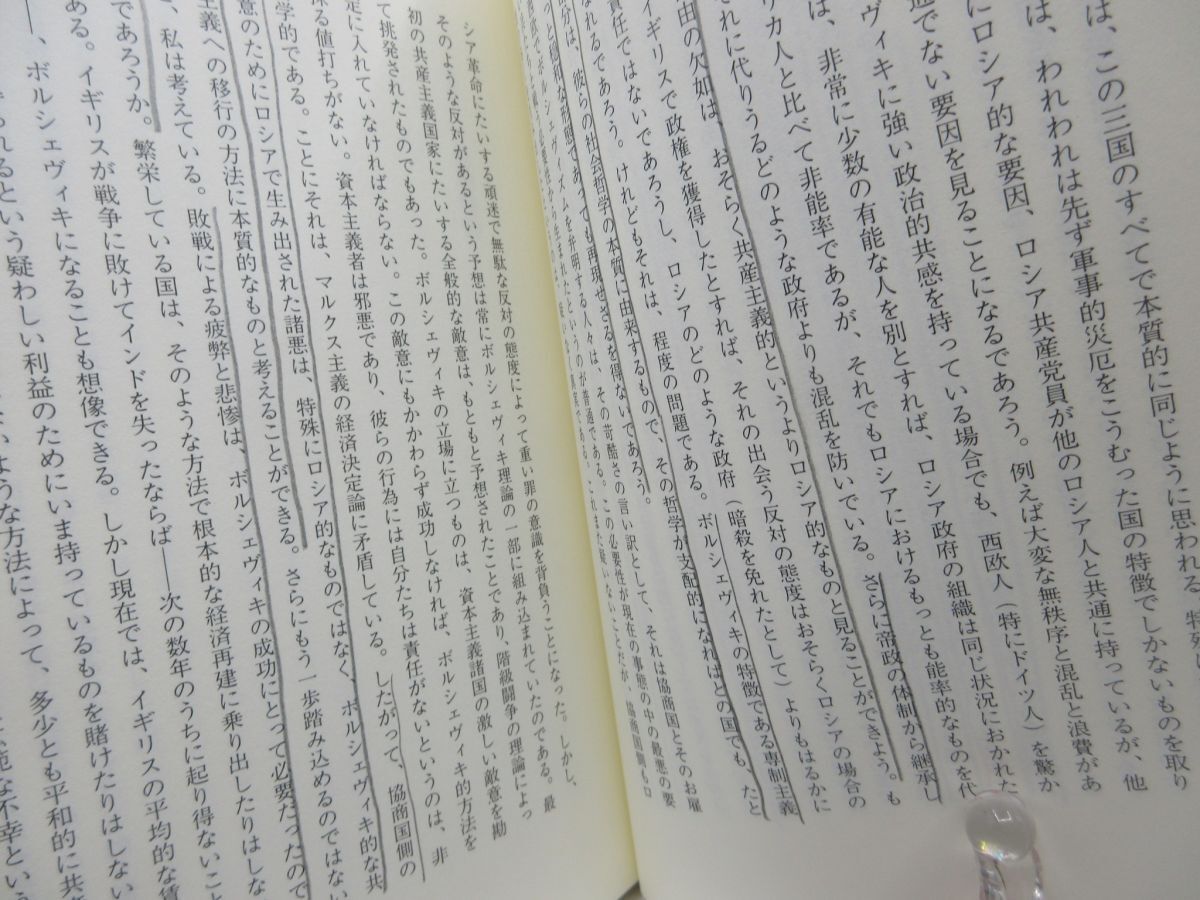 は、この三国のすべてで本質的に同じように思われる
は、われわれは先ず軍事的災厄をこうむった国の特徴でしかないものを取り
にロシア的な要因、ロシア共産党員が他のロシア人と共通に持っているが、他
通でない要因を見ることになるであろう。例えば大変な無秩序と混乱と浪費があ
ヴィキに強い政治的共感を持っている場合でも、西欧人（特にドイツ人）を驚か
は、非常に少数の有能な人を別とすれば、ロシア政府の組織は同じ状況におかれた
リカ人と比べて非能率であるが、それでもロシアにおけるもっとも能率的なものを代
れに代りうるどのような政府よりも混乱を防いでいる。さらに帝政の体制から継承し
由の欠如は、おそらく共産主義的というよりロシア的なものと見ることができよう。も
イギリスで政権を獲得したとすれば、それの出会う反対の態度はおそらくロシアの場合の
責任ではないであろうし、ロシアのどのような政府（暗殺を免れたとして）よりもはるかに
れるであろう。けれどもそれは、程度の問題である。ボルシェヴィキの特徴である専制主義
分は、彼らの社会哲学の本質に由来するもので、その哲学が支配的になればどの国でも、たと
穏和な形態であっても再現せざるを得ないであろう。
ボルシェヴィズムを弁明する人々は、その苛酷さの言い訳として、それは協商国とそのお雇
必要性から生まれたというのが普通である。この必要性が現在の事態の中の最悪の要
シア革命にたいする頑迷で無駄な反対の態度によって重い罪の意識を背負うことになった。しかし、
そのような反対があるという予想は常にボルシェヴィキ理論の一部に組み込まれていたのである。最
初の共産主義国家にたいする全般的な敵意は、もともと予想されたことであり、階級闘争の理論によっ
て挑発されたものでもあった。ボルシェヴィキの立場に立つものは、資本主義諸国の激しい敵意を勘
定に入れていなければならない。この敵意にもかかわらず成功しなければ、ボルシェヴィキ的方法を
採る値打ちがない。資本主義者は邪悪であり、彼らの行為には自分たちは責任がないというのは、非
学的である。ことにそれは、マルクス主義の経済決定論に矛盾している。したがって、協商国側の
意のためにロシアで生み出された諸悪は、特殊にロシア的なものではなく、ボルシェヴィキ的な共
義への移行の方法に本質的なものと考えることができる。さらにもう一歩踏み込めるのではない
、私は考えている。敗戦による疲弊と悲惨は、ボルシェヴィキの成功にとって必要だったので
であろうか。繁栄している国は、そのような方法で根本的な経済再建に乗り出したりはしな
ある。イギリスが戦争に敗けてインドを失ったならば――次の数年のうちに起り得ないこと
―、ボルシェヴィキになることも想像できる。しかし現在では、イギリスの平均的な賃
られるという疑わしい利益のためにいま持っているものを賭けたりはしない
ような方法によって、多少とも平和的に共
な不幸という